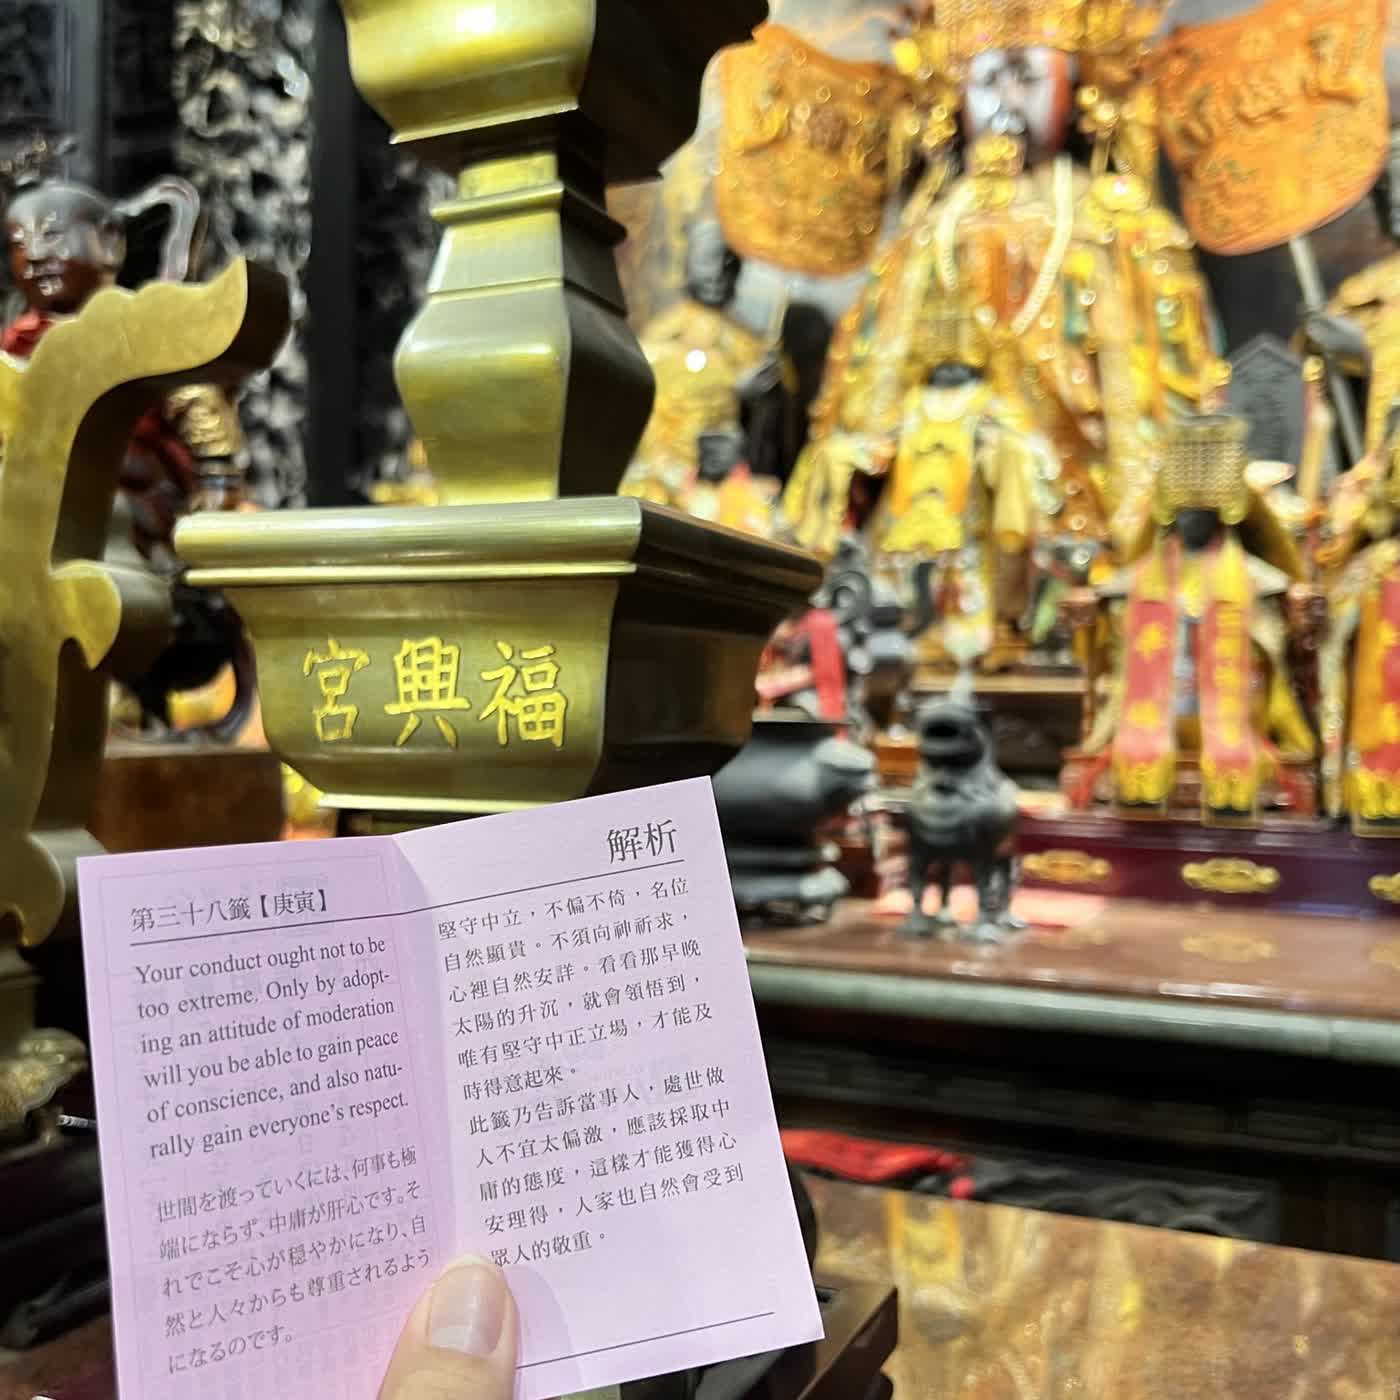 宮興福
解析
第三十八籤【庚寅】
Your conduct ought not to be
too extreme. Only by adopt-
ing an attitude of moderation
will you be able to gain peace
of conscience, and also natu-
rally gain everyone's respect.
世間を渡っていくには、何事も極
端にならず、中庸が肝心です。そ
れでこそ心が穏やかになり、自
然と人々からも尊重されるよう
になるのです。
堅守中立，不偏不倚，名位
自然顯貴。不須向神祈求，
心裡自然安詳。看看那早晚
太陽的升沉，就會領悟到，
唯有堅守中正立場，才能及
時得意起來。
此籤乃告訴當事人，處世做
人不宜太偏激，應該採取中
庸的態度，這樣才能獲得心
安理得，人家也自然會受到
眾人的敬重。